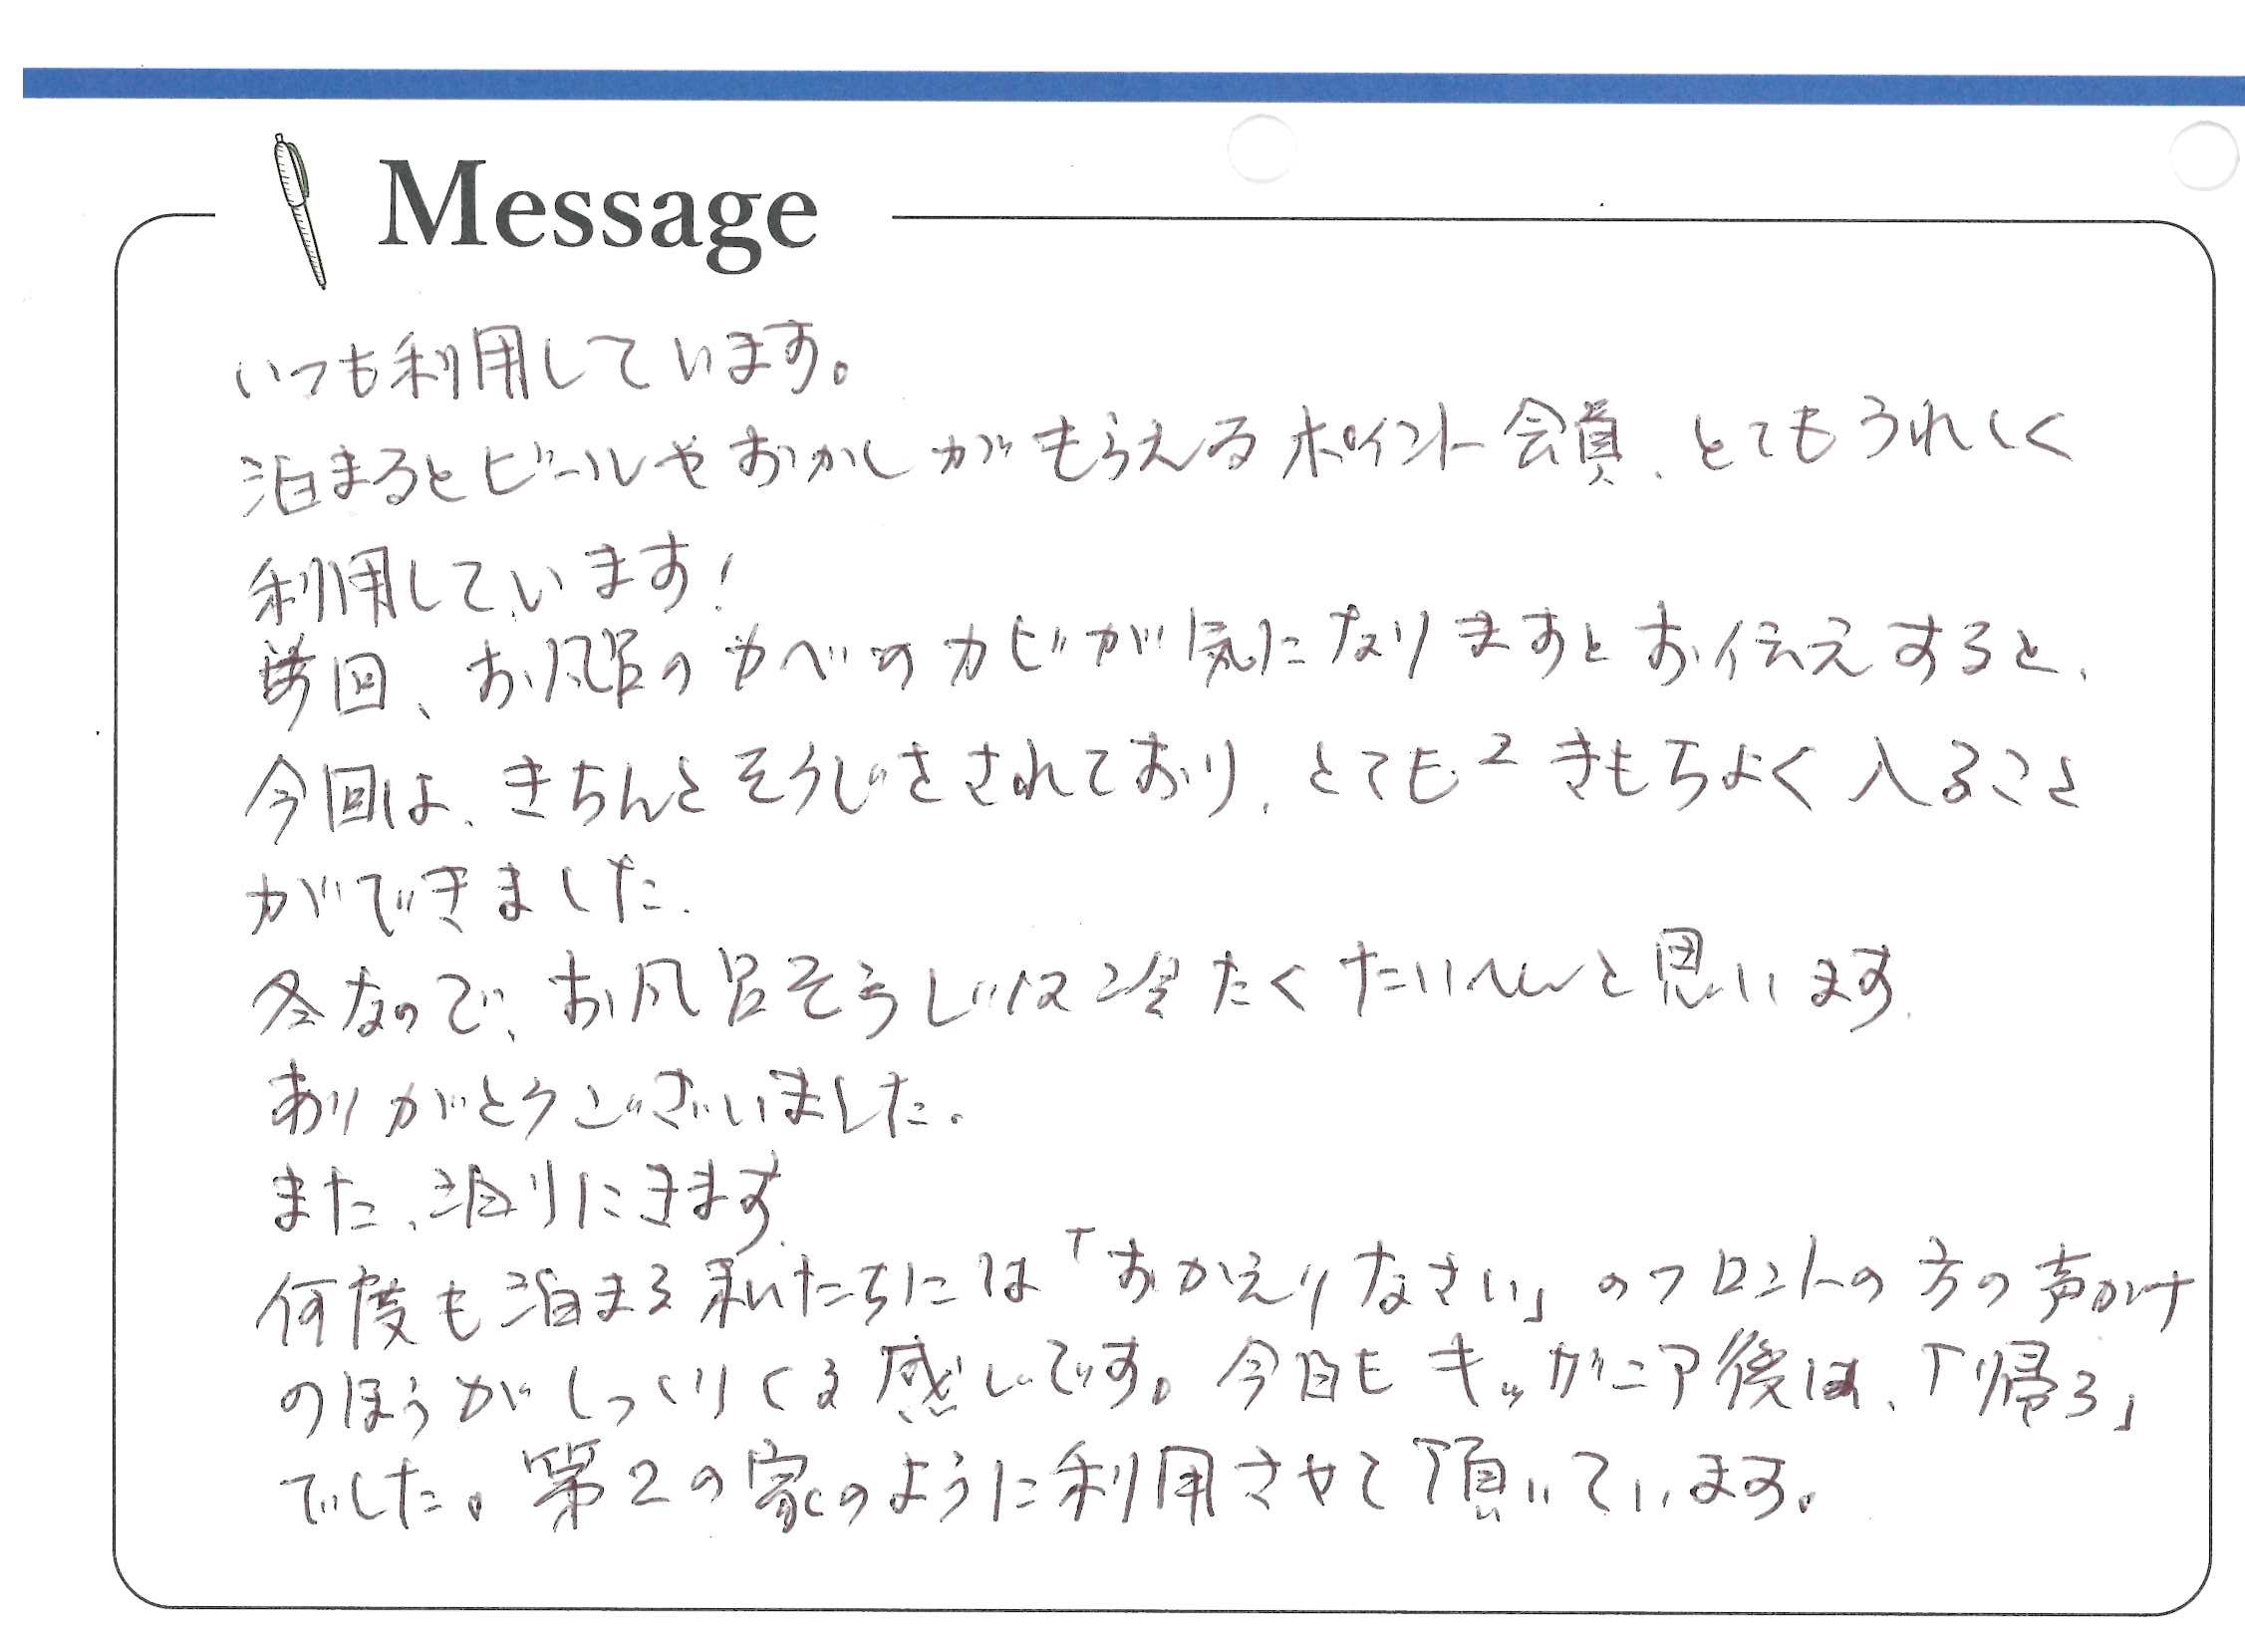 Message
いつも利用しています。
泊まるとビールやおかしがもらえるポイント会員、とてもうれしく
利用しています!
毎回、お風呂のカベのカビが気になりますとお伝えすると、
今回は、きちんとそうじをされており、とても2きもちよく入ること
ができました.
冬なので、お風呂そうじは冷たくたいへんと思います.
ありがとうございました。
また、泊りにきます.
何度も泊まる私たちには「おかえりなさい」のフロントの方の声かけ
のほうがしっくりくる感じです。今日もキッザニア後は、「帰ろ」
でした。第2の家のように利用させて頂いています。